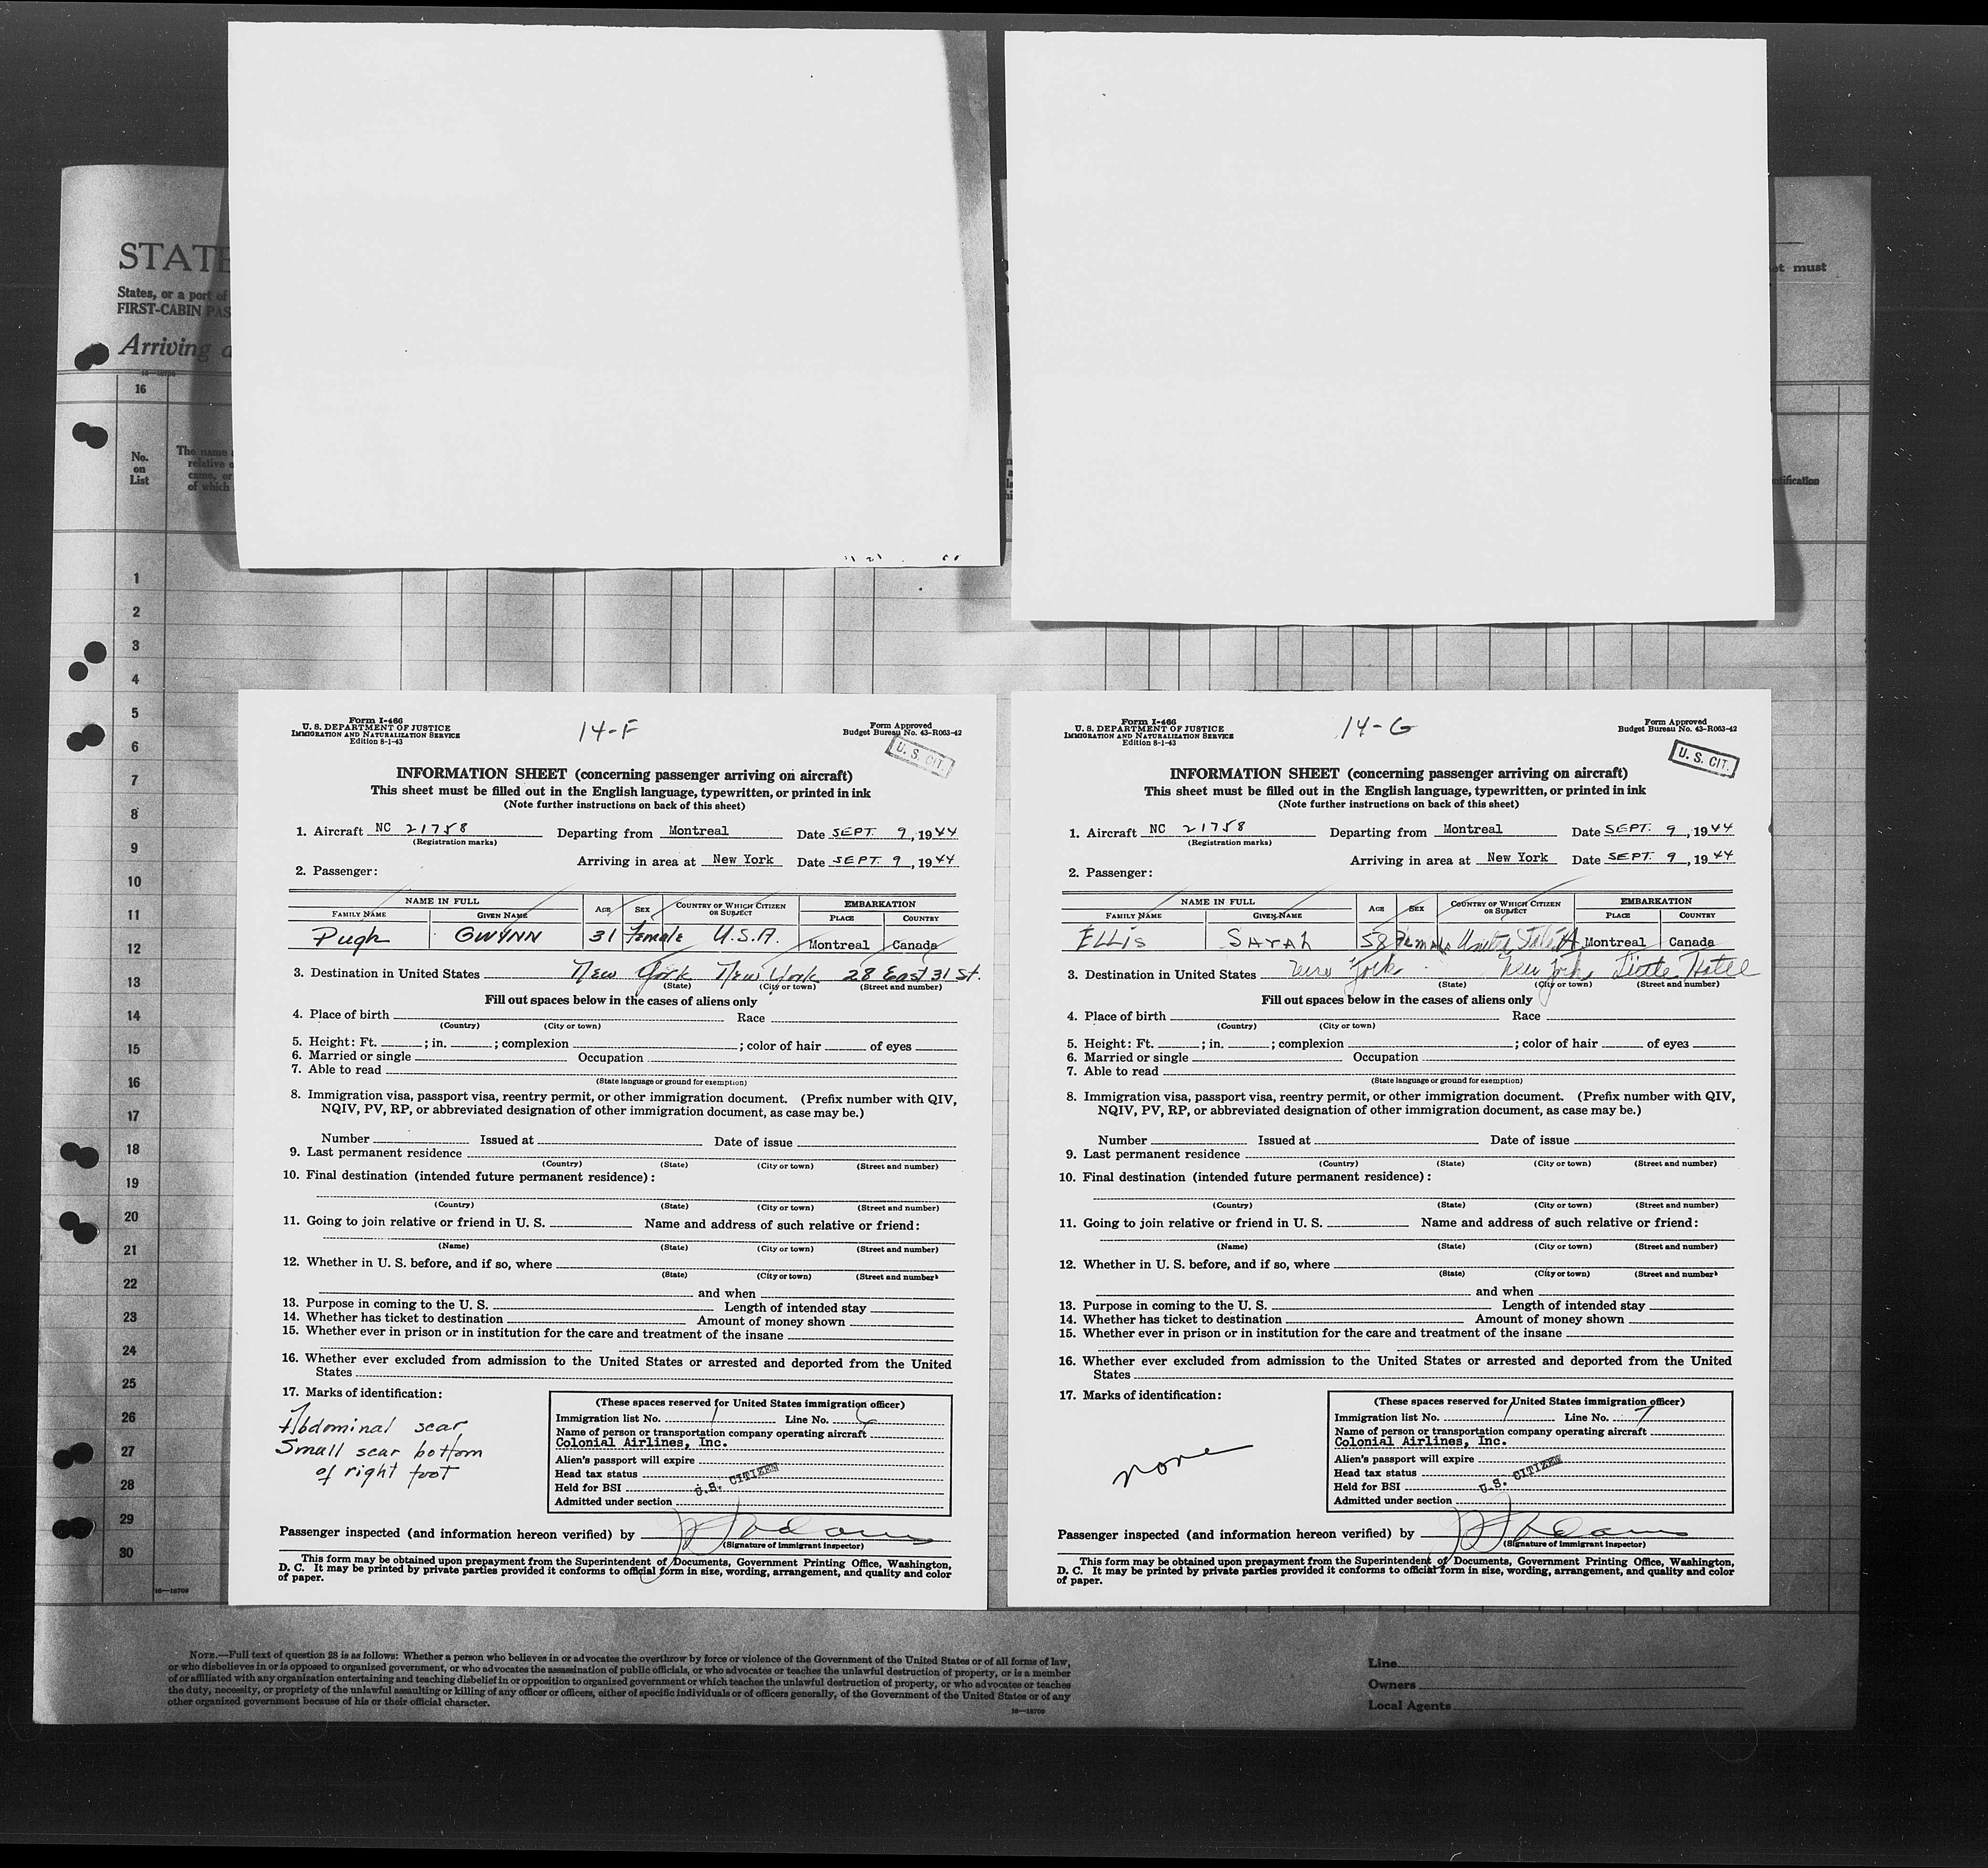 STATE
States, or a port of
FIRST-CABIN PAS
Arriving a
et must
16
No.
on
List
The name
relative o
came, or
of which
ntification
1
2
3
4
5
6
7
8
9
10
11
12
13
14
15
16
17
18
19
20
21
22
23
24
25
26
27
28
29
30
16—18709
Form I-466
U. S. DEPARTMENT OF JUSTICE
IMMIGRATION AND NATURALIZATION SERVICE
Edition 8-1-43
14-F
Form Approved
Budget Bureau No. 43-R063-42
U. S. CIT.
INFORMATION SHEET (concerning passenger arriving on aircraft)
This sheet must be filled out in the English language, typewritten, or printed in ink
(Note further instructions on back of this sheet)
1. Aircraft NC 21758 Departing from Montreal Date SEPT. 9, 1944
(Registration marks)
Arriving in area at New York Date SEPT. 9, 1944
2. Passenger:
NAME IN FULL AGE SEX COUNTRY OF WHICH CITIZEN OR SUBJECT EMBARKATION
FAMILY NAME GIVEN NAME PLACE COUNTRY
Pugh GWYNN 31 Female U.S.A. Montreal Canada
3. Destination in United States New York New York 28 East 31 St.
(State) (City or town) (Street and number)
Fill out spaces below in the cases of aliens only
4. Place of birth Race
(Country) (City or town)
5. Height: Ft. ; in. ; complexion ; color of hair of eyes
6. Married or single Occupation
7. Able to read
(State language or ground for exemption)
8. Immigration visa, passport visa, reentry permit, or other immigration document. (Prefix number with QIV,
NQIV, PV, RP, or abbreviated designation of other immigration document, as case may be.)
Number Issued at Date of issue
9. Last permanent residence
(Country) (State) (City or town) (Street and number)
10. Final destination (intended future permanent residence):
(Country) (State) (City or town) (Street and number)
11. Going to join relative or friend in U. S. Name and address of such relative or friend:
(Name) (State) (City or town) (Street and number)
12. Whether in U. S. before, and if so, where
(State) (City or town) (Street and number)
and when
13. Purpose in coming to the U. S. Length of intended stay
14. Whether has ticket to destination Amount of money shown
15. Whether ever in prison or in institution for the care and treatment of the insane
16. Whether ever excluded from admission to the United States or arrested and deported from the United
States
17. Marks of identification:
Abdominal scar
Small scar bottom
of right foot
(These spaces reserved for United States immigration officer)
Immigration list No. 1 Line No. 6
Name of person or transportation company operating aircraft
Colonial Airlines, Inc.
Alien's passport will expire
Head tax status
U.S. CITIZEN
Held for BSI
Admitted under section
Passenger inspected (and information hereon verified) by
(Signature of immigrant inspector)
This form may be obtained upon prepayment from the Superintendent of Documents, Government Printing Office, Washington,
D. C. It may be printed by private parties provided it conforms to official form in size, wording, arrangement, and quality and color
of paper.
Form I-466
U. S. DEPARTMENT OF JUSTICE
IMMIGRATION AND NATURALIZATION SERVICE
Edition 8-1-43
14-G
Form Approved
Budget Bureau No. 43-R063-42
U. S. CIT.
INFORMATION SHEET (concerning passenger arriving on aircraft)
This sheet must be filled out in the English language, typewritten, or printed in ink
(Note further instructions on back of this sheet)
1. Aircraft NC 21758 Departing from Montreal Date SEPT. 9, 1944
(Registration marks)
Arriving in area at New York Date SEPT. 9, 1944
2. Passenger:
NAME IN FULL AGE SEX COUNTRY OF WHICH CITIZEN OR SUBJECT EMBARKATION
FAMILY NAME GIVEN NAME PLACE COUNTRY
ELLIS SARAH 58 Female United States Montreal Canada
3. Destination in United States New York New York Hotel
(State) (City or town) (Street and number)
Fill out spaces below in the cases of aliens only
4. Place of birth Race
(Country) (City or town)
5. Height: Ft. ; in. ; complexion ; color of hair of eyes
6. Married or single Occupation
7. Able to read
(State language or ground for exemption)
8. Immigration visa, passport visa, reentry permit, or other immigration document. (Prefix number with QIV,
NQIV, PV, RP, or abbreviated designation of other immigration document, as case may be.)
Number Issued at Date of issue
9. Last permanent residence
(Country) (State) (City or town) (Street and number)
10. Final destination (intended future permanent residence):
(Country) (State) (City or town) (Street and number)
11. Going to join relative or friend in U. S. Name and address of such relative or friend:
(Name) (State) (City or town) (Street and number)
12. Whether in U. S. before, and if so, where
(State) (City or town) (Street and number)
and when
13. Purpose in coming to the U. S. Length of intended stay
14. Whether has ticket to destination Amount of money shown
15. Whether ever in prison or in institution for the care and treatment of the insane
16. Whether ever excluded from admission to the United States or arrested and deported from the United
States
17. Marks of identification:
none
(These spaces reserved for United States immigration officer)
Immigration list No. 1 Line No. 7
Name of person or transportation company operating aircraft
Colonial Airlines, Inc.
Alien's passport will expire
Head tax status
U.S. CITIZEN
Held for BSI
Admitted under section
Passenger inspected (and information hereon verified) by
(Signature of immigrant inspector)
This form may be obtained upon prepayment from the Superintendent of Documents, Government Printing Office, Washington,
D. C. It may be printed by private parties provided it conforms to official form in size, wording, arrangement, and quality and color
of paper.
NOTE.—Full text of question 28 is as follows: Whether a person who believes in or advocates the overthrow by force or violence of the Government of the United States or of all forms of law,
or who disbelieves in or is opposed to organized government, or who advocates the assassination of public officials, or who advocates or teaches the unlawful destruction of property, or is a member
of or affiliated with any organization entertaining and teaching disbelief in or opposition to organized government or which teaches the unlawful destruction of property, or who advocates or teaches
the duty, necessity, or propriety of the unlawful assaulting or killing of any officer or officers, either of specific individuals or of officers generally, of the Government of the United States or of any
other organized government because of his or their official character.
16—18709
Line
Owners
Local Agents